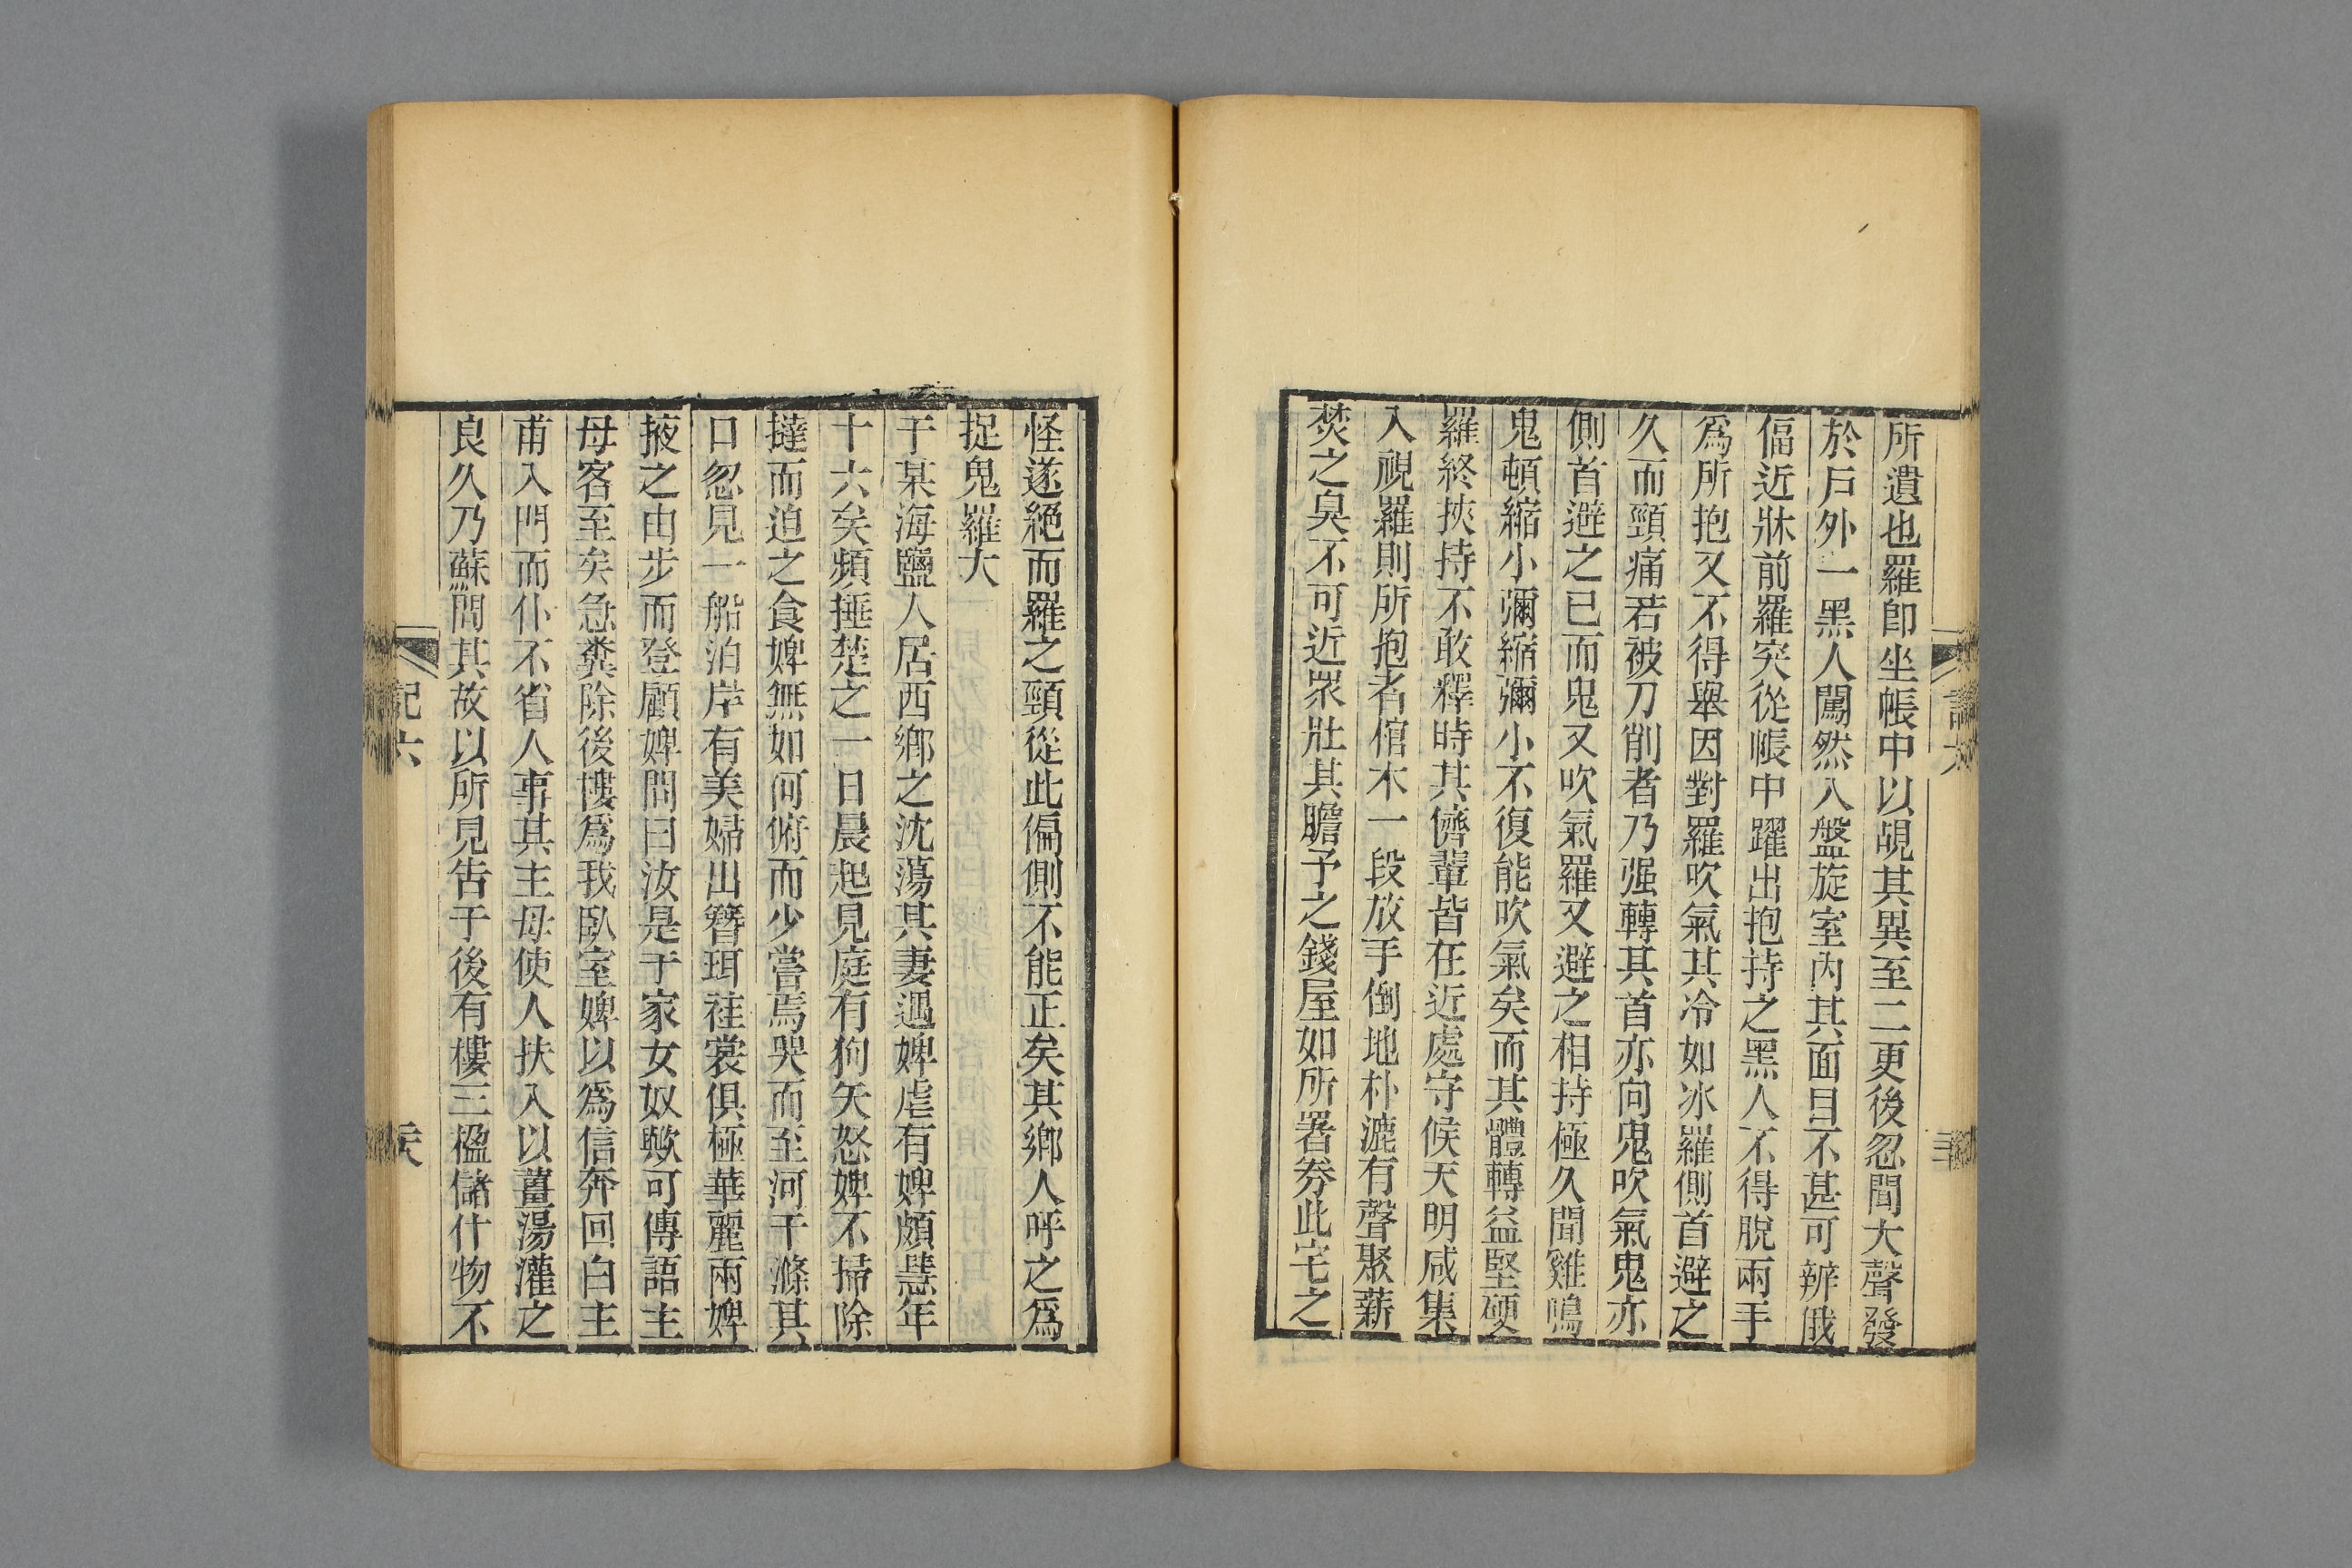 所遺也羅卽坐帳中以覘其異至二更後忽聞大聲發
於戶外一黑人闖然入盤旋室內其面目不甚可辨俄
偪近牀前羅突從帳中躍出抱持之黑人不得脫兩手
爲所抱又不得舉因對羅吹氣其冷如冰羅側首避之
久而頸痛若被刀削者乃强轉其首亦向鬼吹氣鬼亦
側首避之已而鬼又吹氣羅又避之相持極久聞雞鳴
鬼頓縮小彌縮彌小不復能吹氣矣而其體轉益堅硬
羅終挾持不敢釋時其儕輩皆在近處守候天明咸集
入視羅則所抱者棺木一段放手倒地朴漉有聲聚薪
焚之臭不可近眾壯其膽予之錢屋如所署券此宅之
怪遂絕而羅之頸從此偏側不能正矣其鄉人呼之爲
捉鬼羅大
于某海鹽人居西鄉之沈蕩其妻遇婢虐有婢頗慧年
十六矣頻捶楚之一日晨起見庭有狗矢怒婢不掃除
撻而迫之食婢無如何俯而少嘗焉哭而至河干滌其
口忽見一船泊岸有美婦出簪珥袿裳俱極華麗兩婢
掖之由步而登顧婢問曰汝是于家女奴歟可傳語主
母客至矣急糞除後樓爲我臥室婢以爲信奔回白主
甫入門而仆不省人事其主母使人扶入以薑湯灌之
良久乃蘇問其故以所見告于後有樓三楹儲什物不
記六